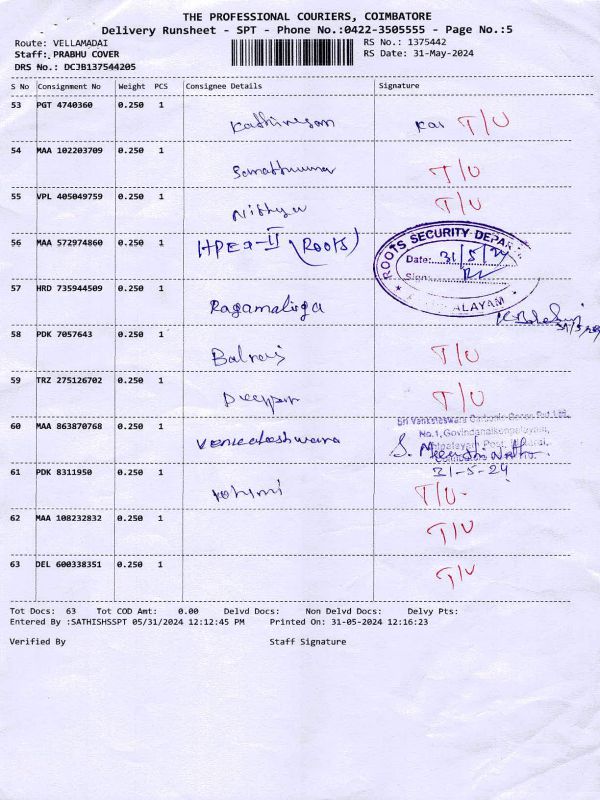 THE PROFESSIONAL COURIERS, COIMBATORE
Delivery Runsheet - SPT - Phone No.:0422-3505555 - Page No.:5
Route: VELLAMADAI RS No.: 1375442
Staff: PRABHU COVER RS Date: 31-May-2024
DRS No.: DCJB137544205
S No Consignment No Weight PCS Consignee Details Signature
53 PGT 4740360 0.250 1
Kathiresan Kai T/U
54 MAA 102203709 0.250 1
T/U
55 VPL 405049759 0.250 1 T/U
Nithya
56 MAA 572974860 0.250 1 (ROOTS) ROOTS SECURITY DEPAR
Date: 31/5/24
Sign
57 HRD 735944509 0.250 1 ALAYAM
Ragamaliga
58 PDK 7057643 0.250 1
Balraj T/U
59 TRZ 275126702 0.250 1
T/U
Sri Venkateswara Pvt Ltd.,
60 MAA 863870768 0.250 1 No.1, Govindanaickenpalayam,
Venkateshwara
31-5-24
61 PDK 8311950 0.250 1
T/U
62 MAA 108232832 0.250 1 T/U
63 DEL 600338351 0.250 1 T/U
Tot Docs: 63 Tot COD Amt: 0.00 Delvd Docs: Non Delvd Docs: Delvy Pts:
Entered By :SATHISHSSPT 05/31/2024 12:12:45 PM Printed On: 31-05-2024 12:16:23
Verified By Staff Signature